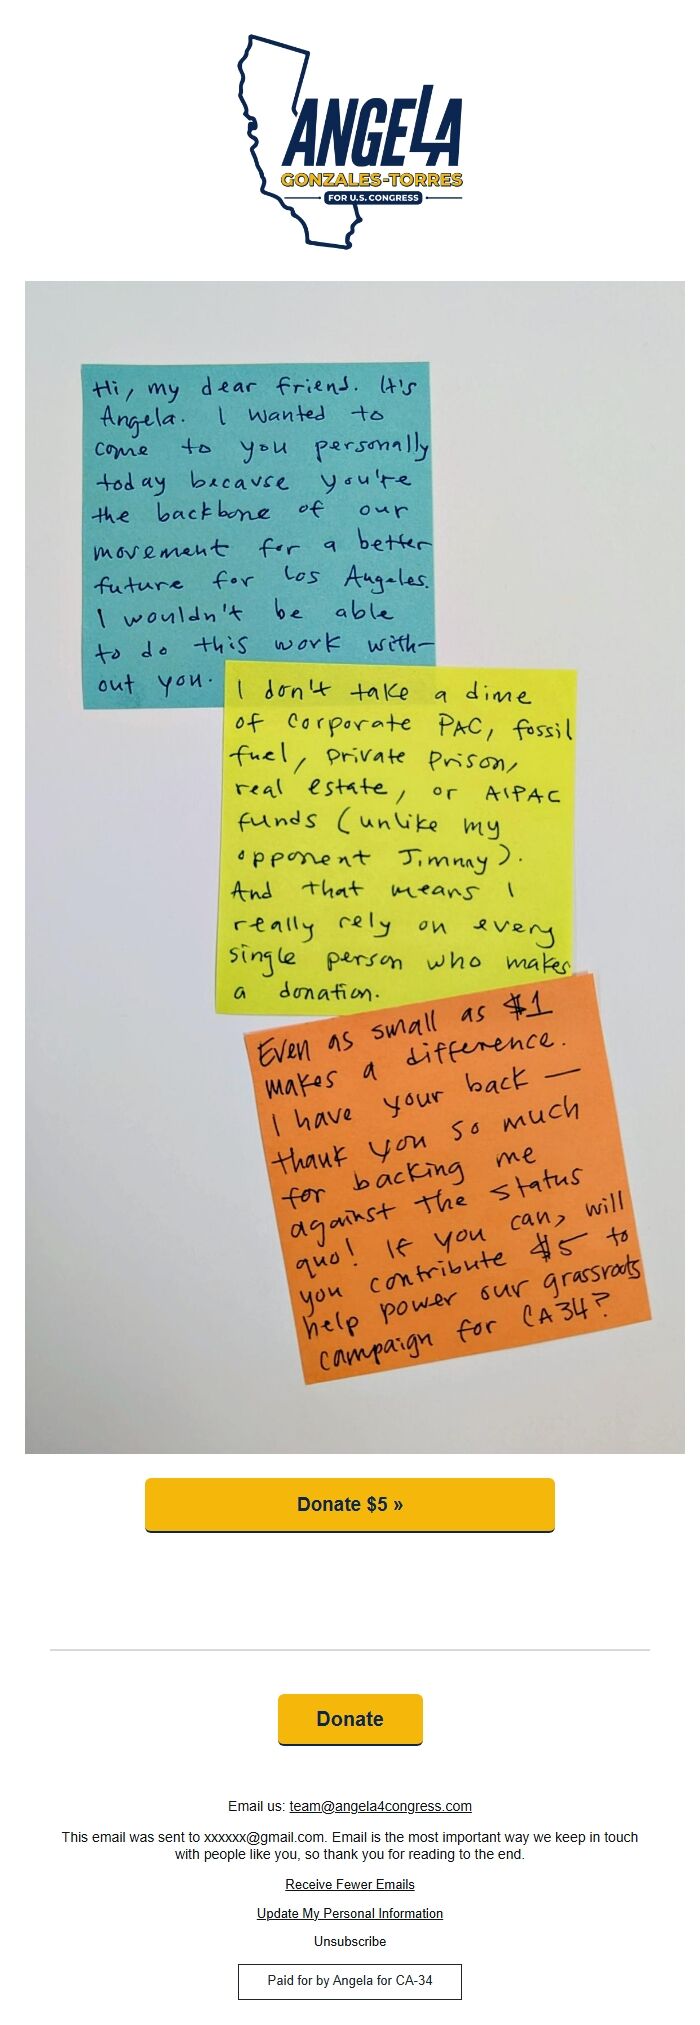 ANGELA
GONZALES-TORRES
FOR U.S. CONGRESS
Hi, my dear friend. It's
Angela. I wanted to
come to you personally
today because you're
the backbone of our
movement for a better
future for Los Angeles.
I wouldn't be able
to do this work with-
out you.
I don't take a dime
of corporate PAC, fossil
fuel, private prison,
real estate, or AIPAC
funds (unlike my
opponent Jimmy).
And that means I
really rely on every
single person who makes
a donation.
Even as small as $1
makes a difference.
I have your back —
thank you so much
for backing me
against the status
quo! If you can, will
you contribute $5 to
help power our grassroots
campaign for CA34?
Donate $5 »
Donate
Email us: team@angela4congress.com
This email was sent to xxxxxx@gmail.com. Email is the most important way we keep in touch
with people like you, so thank you for reading to the end.
Receive Fewer Emails
Update My Personal Information
Unsubscribe
Paid for by Angela for CA-34